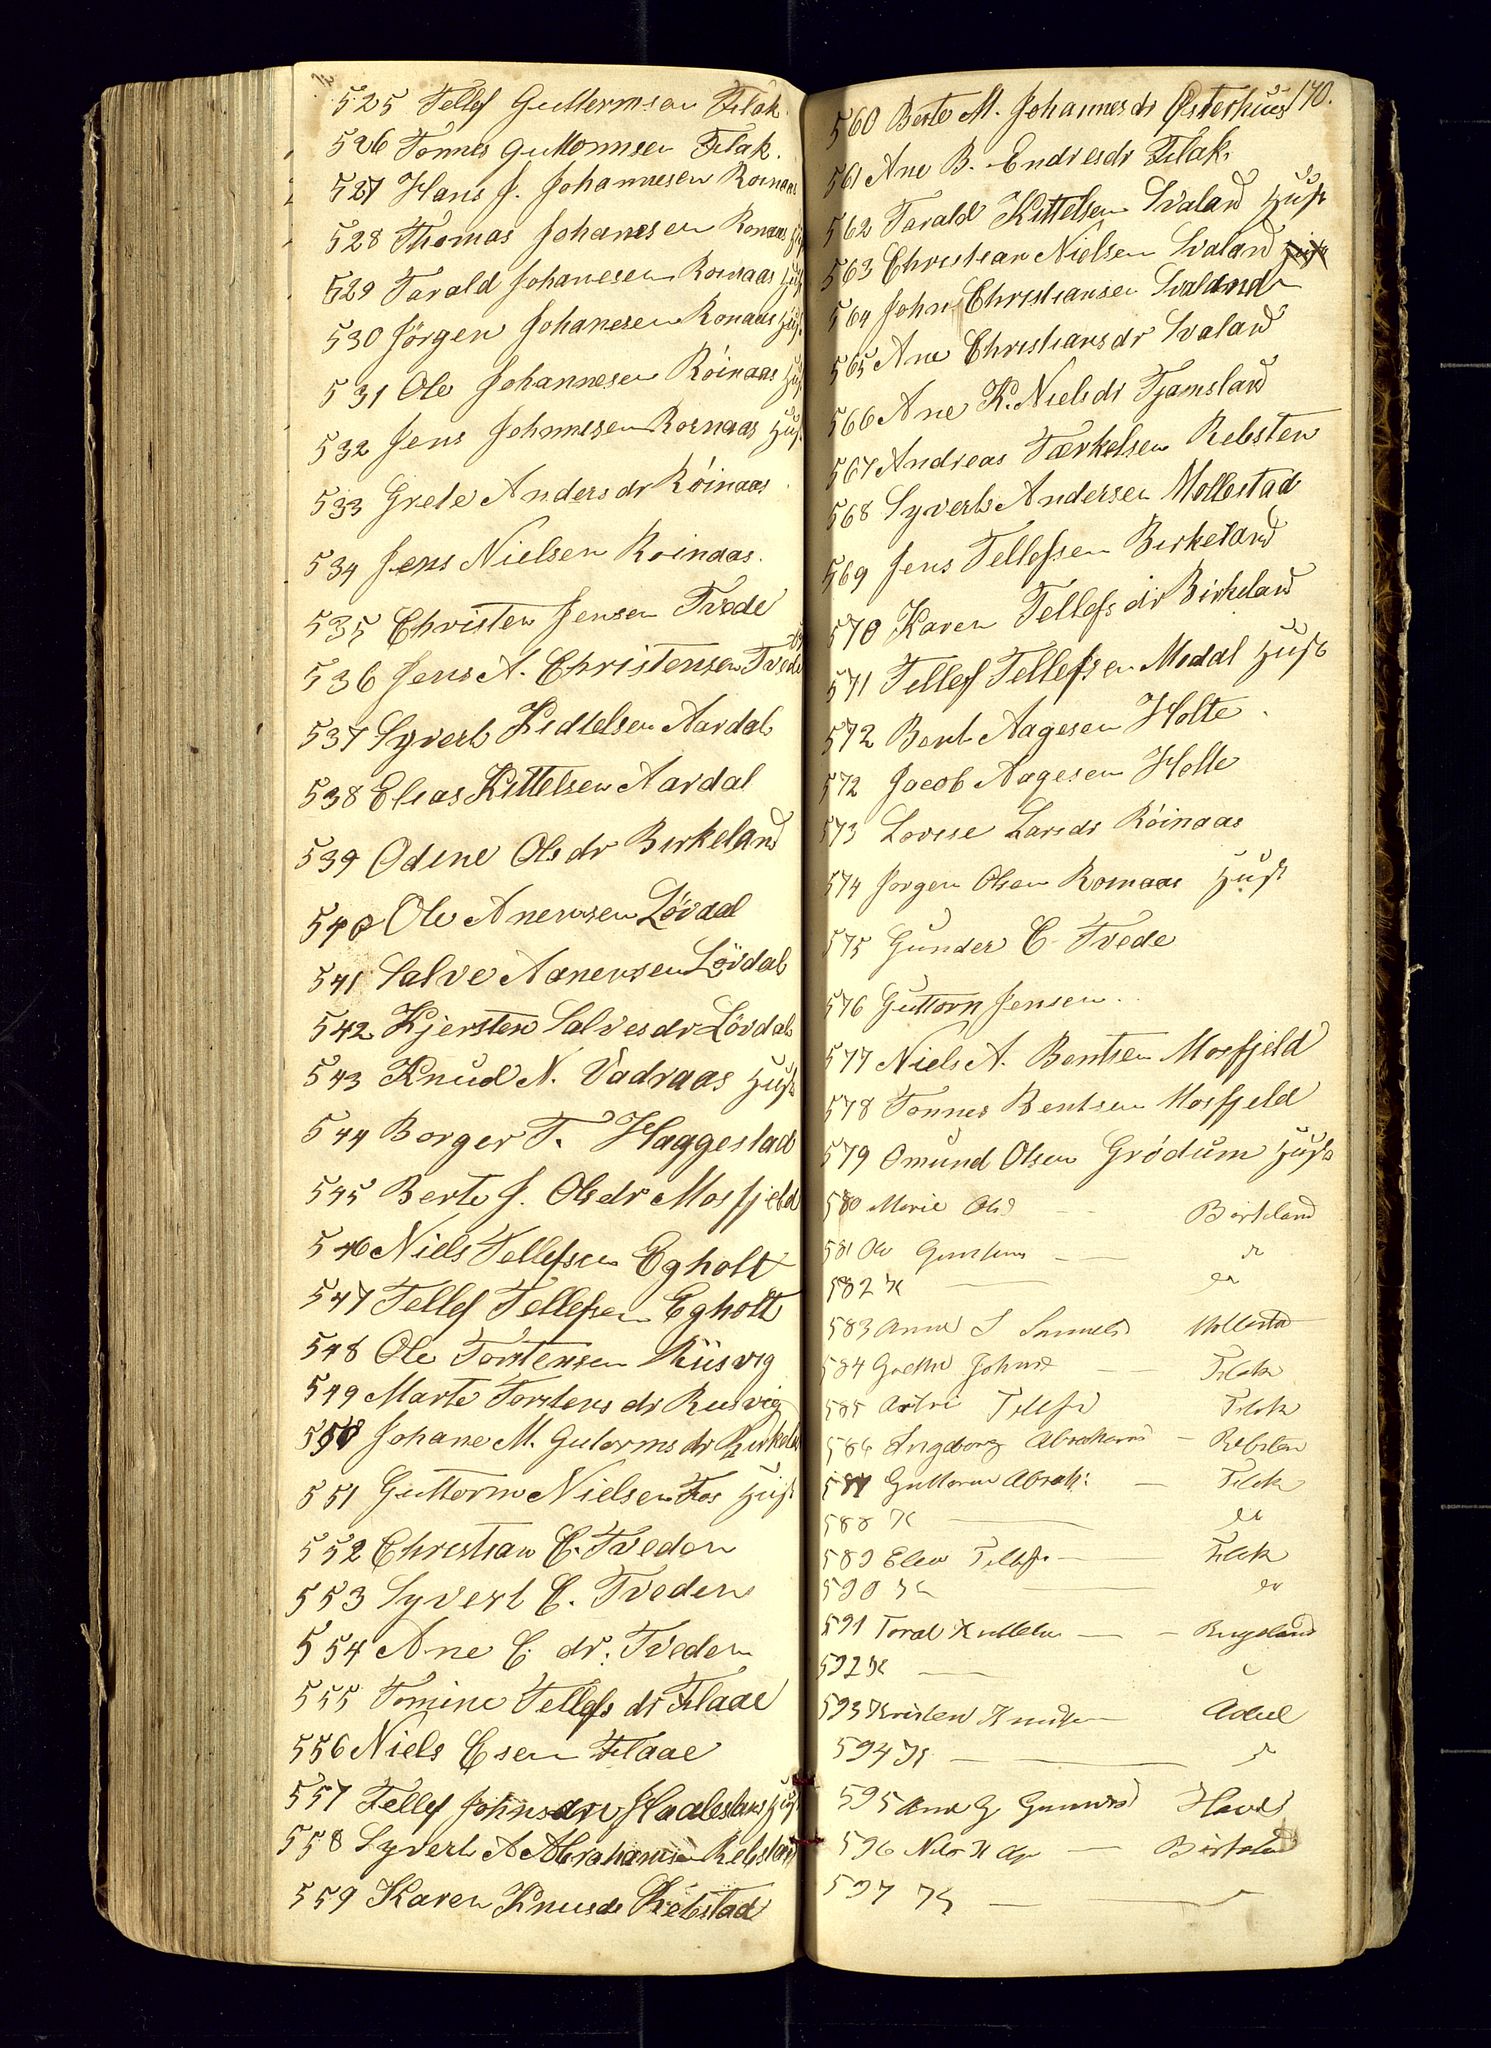 525 Tellef Guttormsen Flak.
526 Tonnes Guttormsen Flak.
527 Hans J. Johannesen Roinaas
528 Thomas Johanesen Roinaas
529 Tarald Johanesen Roinaas
530 Jörgen Johanesen Roinaas Hust
531 Ole Johannesen Röinaas
532 Jens Johannesen Roinaas Hust
533 Grete Andersdr Röinaas
534 Jens Nielsen Roinaas.
535 Christen Jensen Tvede
536 Jens A. Christensen Tvede
537 Syvert Kidtelsen Aardal
538 Elias Kittelsen Aardal
539 Odine Olsdr Birkeland
540 Ole Anensen Lövdal
541 Salve Aanensen Lövdal
542 Kjersten Salvesdr Lövdal
543 Knud N. Vadraas Hust
544 Borger T. Haggestad
545 Berte J. Olsdr Mosfjeld
546 Niels Tellefsen Egholt
547 Tellef Tellefsen Egholt
548 Ole Torstensen Riisvig
549 Marte Torstensdr Riisvig
550 Johane M. Gutormsdr Birkeld
551 Guttorm Nielsen Fos Hust
552 Christian C. Tveden
553 Syvert C. Tveden
554 Ane C. dr. Tveden
555 Tomine Tellefsdr Flaae
556 Niels Esen Flaae
557 Tellef Johnsen Haaleland Hust
558 Syvert A Abrahamsen Rebstad
559 Karen Knusdr Rebstad
170.
560 Berte M. Johannesdr Østerhus
561 Ane B. Endresdr Flak.
562 Tarald Kittelsen Svaland Hust
563 Christian Nielsen Svaland
564 John Christiansen Svaland
565 Ane Christiansdr Svaland
566 Ane K. Nielsdr Tjamsland
567 Andreas Tærkelsen Rebsten
568 Syvert Andersen Mollestad
569 Jens Tellefsen Birkeland
570 Karen Tellefsdr Birkeland
571 Tellef Tellefsen Modal Hust
572 Bent Aagesen Holte.
572 Jacob Aagesen Holte
573 Lovise Larsdr Röinaas
574 Jorgen Olsen Roinaas Hust
575 Gunder C Tvede
576 Guttorm Jensen.
577 Niels A. Bentsen Mosfjeld
578 Tonnes Bentsen Mosfjeld
579 Omund Olsen Grödum Hust
580 Marie Olsd Birkeland
581 Ole
582 K
583 Anne S Samuelsd Mollestad
584 Johnsd Flak
585 Tellefsd Flak
586 Ingeborg Abrahamsd Rebsten
587 Guttorm Abrah: Flak
588 K
589 Elen Tellefs Flak
590 K
591 Toral Kittelsen
592 K
593 Kristen Knudsen
594 K
595 Anne G Gunnersd
596 Birkeland
597 K